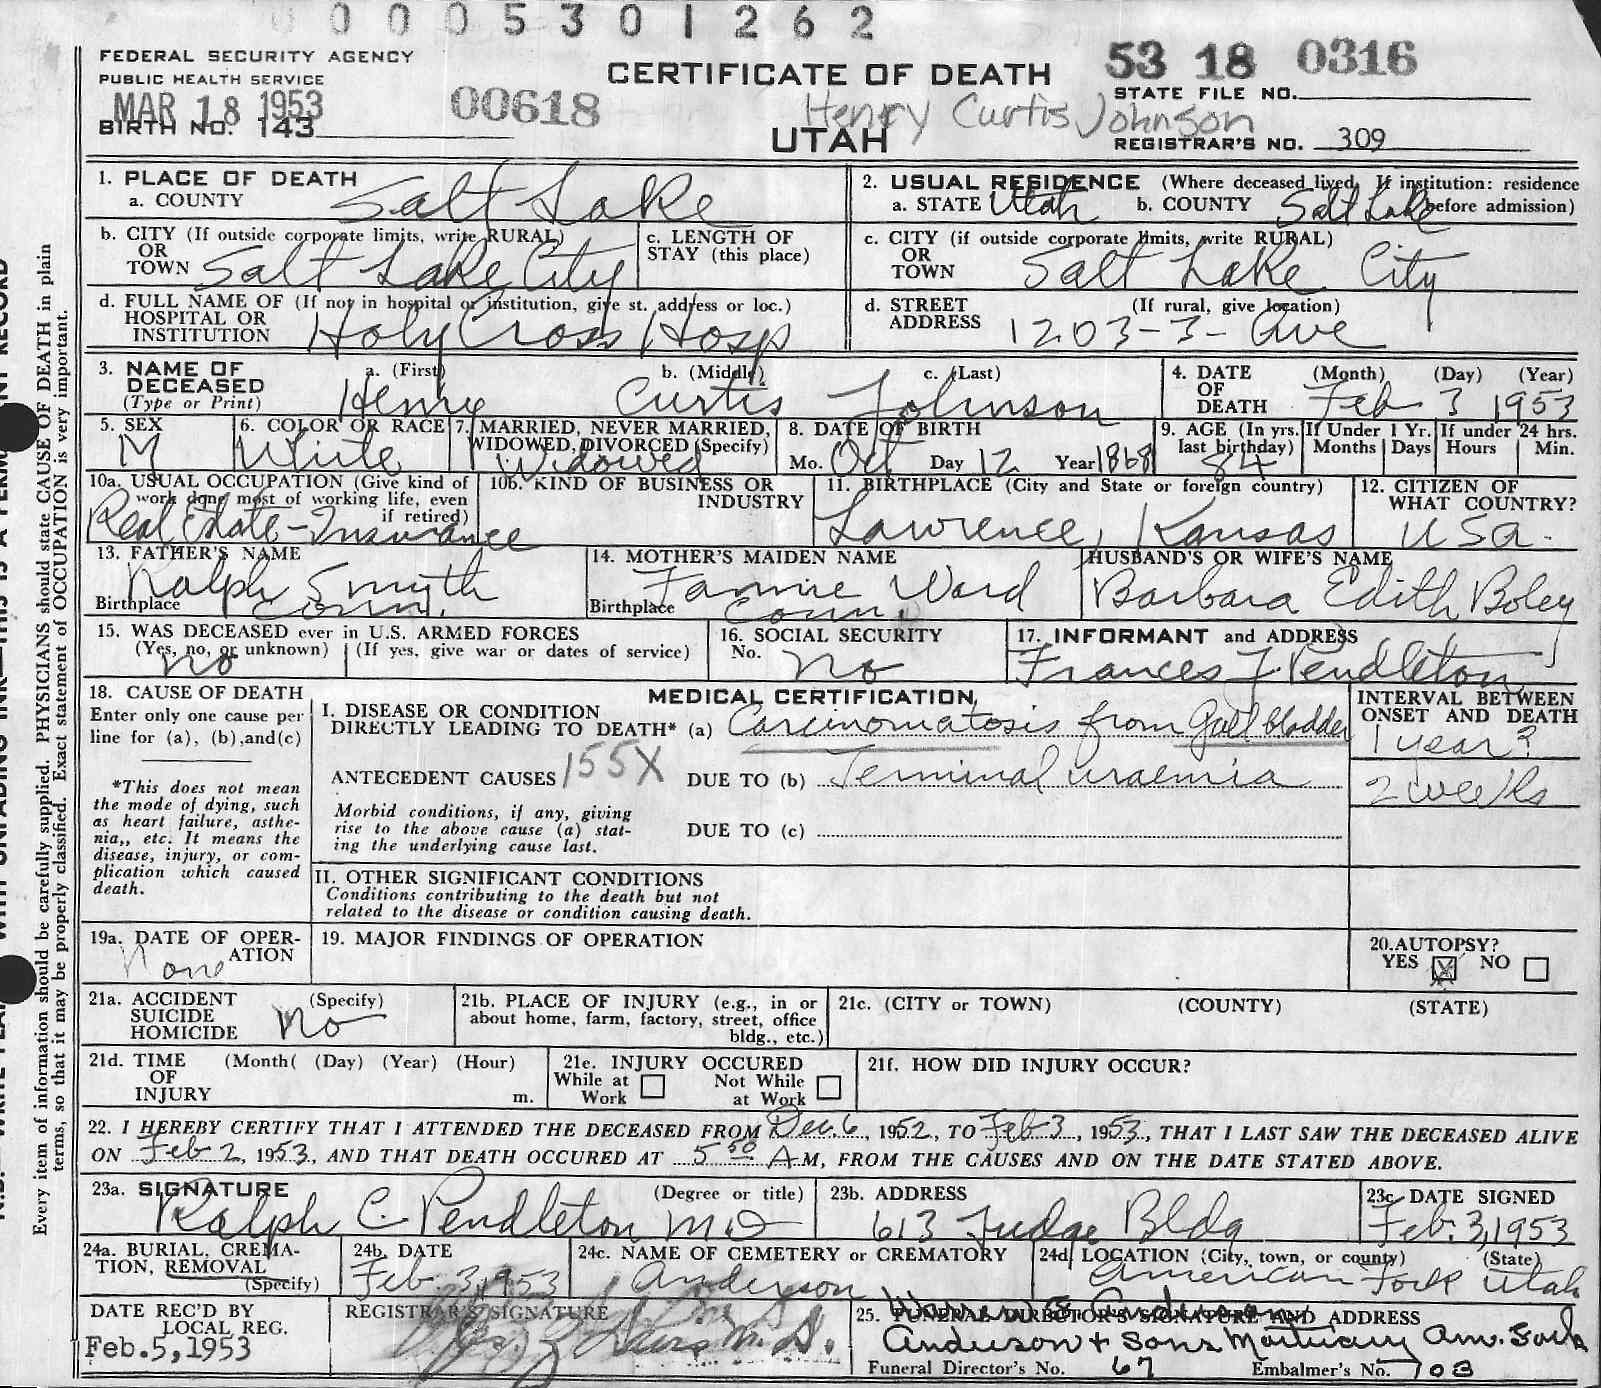 0005301262
FEDERAL SECURITY AGENCY
PUBLIC HEALTH SERVICE
MAR 18 1953
BIRTH NO. 143
00618
CERTIFICATE OF DEATH
Henry Curtis Johnson
UTAH
53 18 0316
STATE FILE NO.
REGISTRAR'S NO. 309
1. PLACE OF DEATH
a. COUNTY Salt Lake
2. USUAL RESIDENCE (Where deceased lived. If institution: residence before admission)
a. STATE Utah b. COUNTY Salt Lake
b. CITY (If outside corporate limits, write RURAL)
OR
TOWN Salt Lake City
c. LENGTH OF
STAY (this place)
c. CITY (if outside corporate limits, write RURAL)
OR
TOWN Salt Lake City
d. FULL NAME OF (If not in hospital or institution, give st. address or loc.)
HOSPITAL OR
INSTITUTION Holy Cross Hosp
d. STREET (If rural, give location)
ADDRESS 1203-3-Ave
3. NAME OF
DECEASED
(Type or Print)
a. (First) b. (Middle) c. (Last)
Henry Curtis Johnson
4. DATE
OF
DEATH
(Month) (Day) (Year)
Feb 3 1953
5. SEX
M
6. COLOR OR RACE
White
7. MARRIED, NEVER MARRIED,
WIDOWED, DIVORCED (Specify)
Widowed
8. DATE OF BIRTH
Mo. Oct Day 12 Year 1868
9. AGE (In yrs. last birthday)
84
If Under 1 Yr.
Months Days
If under 24 hrs.
Hours Min.
10a. USUAL OCCUPATION (Give kind of
work done most of working life, even
if retired)
Real Estate-Insurance
10b. KIND OF BUSINESS OR
INDUSTRY
11. BIRTHPLACE (City and State or foreign country)
Lawrence, Kansas
12. CITIZEN OF
WHAT COUNTRY?
USA.
13. FATHER'S NAME
Ralph Smyth
Birthplace Conn.
14. MOTHER'S MAIDEN NAME
Fannie Ward
Birthplace Conn.
HUSBAND'S OR WIFE'S NAME
Barbara Edith Boley
15. WAS DECEASED ever in U.S. ARMED FORCES
(Yes, no, or unknown) (If yes, give war or dates of service)
no
16. SOCIAL SECURITY
No. no
17. INFORMANT and ADDRESS
Frances J Pendleton
18. CAUSE OF DEATH
Enter only one cause per
line for (a), (b), and (c)
*This does not mean
the mode of dying, such
as heart failure, asthe-
nia,, etc. It means the
disease, injury, or com-
plication which caused
death.
MEDICAL CERTIFICATION
I. DISEASE OR CONDITION
DIRECTLY LEADING TO DEATH* (a) Carcinomatosis from Gall bladder
INTERVAL BETWEEN
ONSET AND DEATH
1 year?
ANTECEDENT CAUSES 155X DUE TO (b) Terminal uraemia
2 weeks
Morbid conditions, if any, giving
rise to the above cause (a) stat-
ing the underlying cause last.
DUE TO (c)
II. OTHER SIGNIFICANT CONDITIONS
Conditions contributing to the death but not
related to the disease or condition causing death.
19a. DATE OF OPER-
ATION
None
19. MAJOR FINDINGS OF OPERATION
20. AUTOPSY?
YES X NO
21a. ACCIDENT (Specify)
SUICIDE
HOMICIDE
No
21b. PLACE OF INJURY (e.g., in or
about home, farm, factory, street, office
bldg., etc.)
21c. (CITY or TOWN) (COUNTY) (STATE)
21d. TIME (Month( (Day) (Year) (Hour)
OF
INJURY m.
21e. INJURY OCCURED
While at Work Not While at Work
21f. HOW DID INJURY OCCUR?
22. I HEREBY CERTIFY THAT I ATTENDED THE DECEASED FROM Dec. 6, 1952, TO Feb 3, 1953, THAT I LAST SAW THE DECEASED ALIVE
ON Feb 2, 1953, AND THAT DEATH OCCURED AT 5 50 A.M, FROM THE CAUSES AND ON THE DATE STATED ABOVE.
23a. SIGNATURE (Degree or title)
Ralph C. Pendleton MD
23b. ADDRESS
613 Judge Bldg
23c. DATE SIGNED
Feb. 3, 1953
24a. BURIAL, CREMA-
TION, REMOVAL
(Specify)
24b. DATE
Feb 3, 1953
24c. NAME OF CEMETERY or CREMATORY
Anderson
24d. LOCATION (City, town, or county) (State)
American Fork Utah
DATE REC'D BY
LOCAL REG.
Feb. 5, 1953
REGISTRAR'S SIGNATURE
M.D.
25. FUNERAL DIRECTOR'S SIGNATURE AND ADDRESS
Warren E Anderson
Anderson & Sons Mortuary Am. Fork
Funeral Director's No. 67 Embalmer's No. 703
Every item of information should be carefully supplied. PHYSICIANS should state CAUSE OF DEATH in plain
terms, so that it may be properly classified. Exact statement of OCCUPATION is very important.